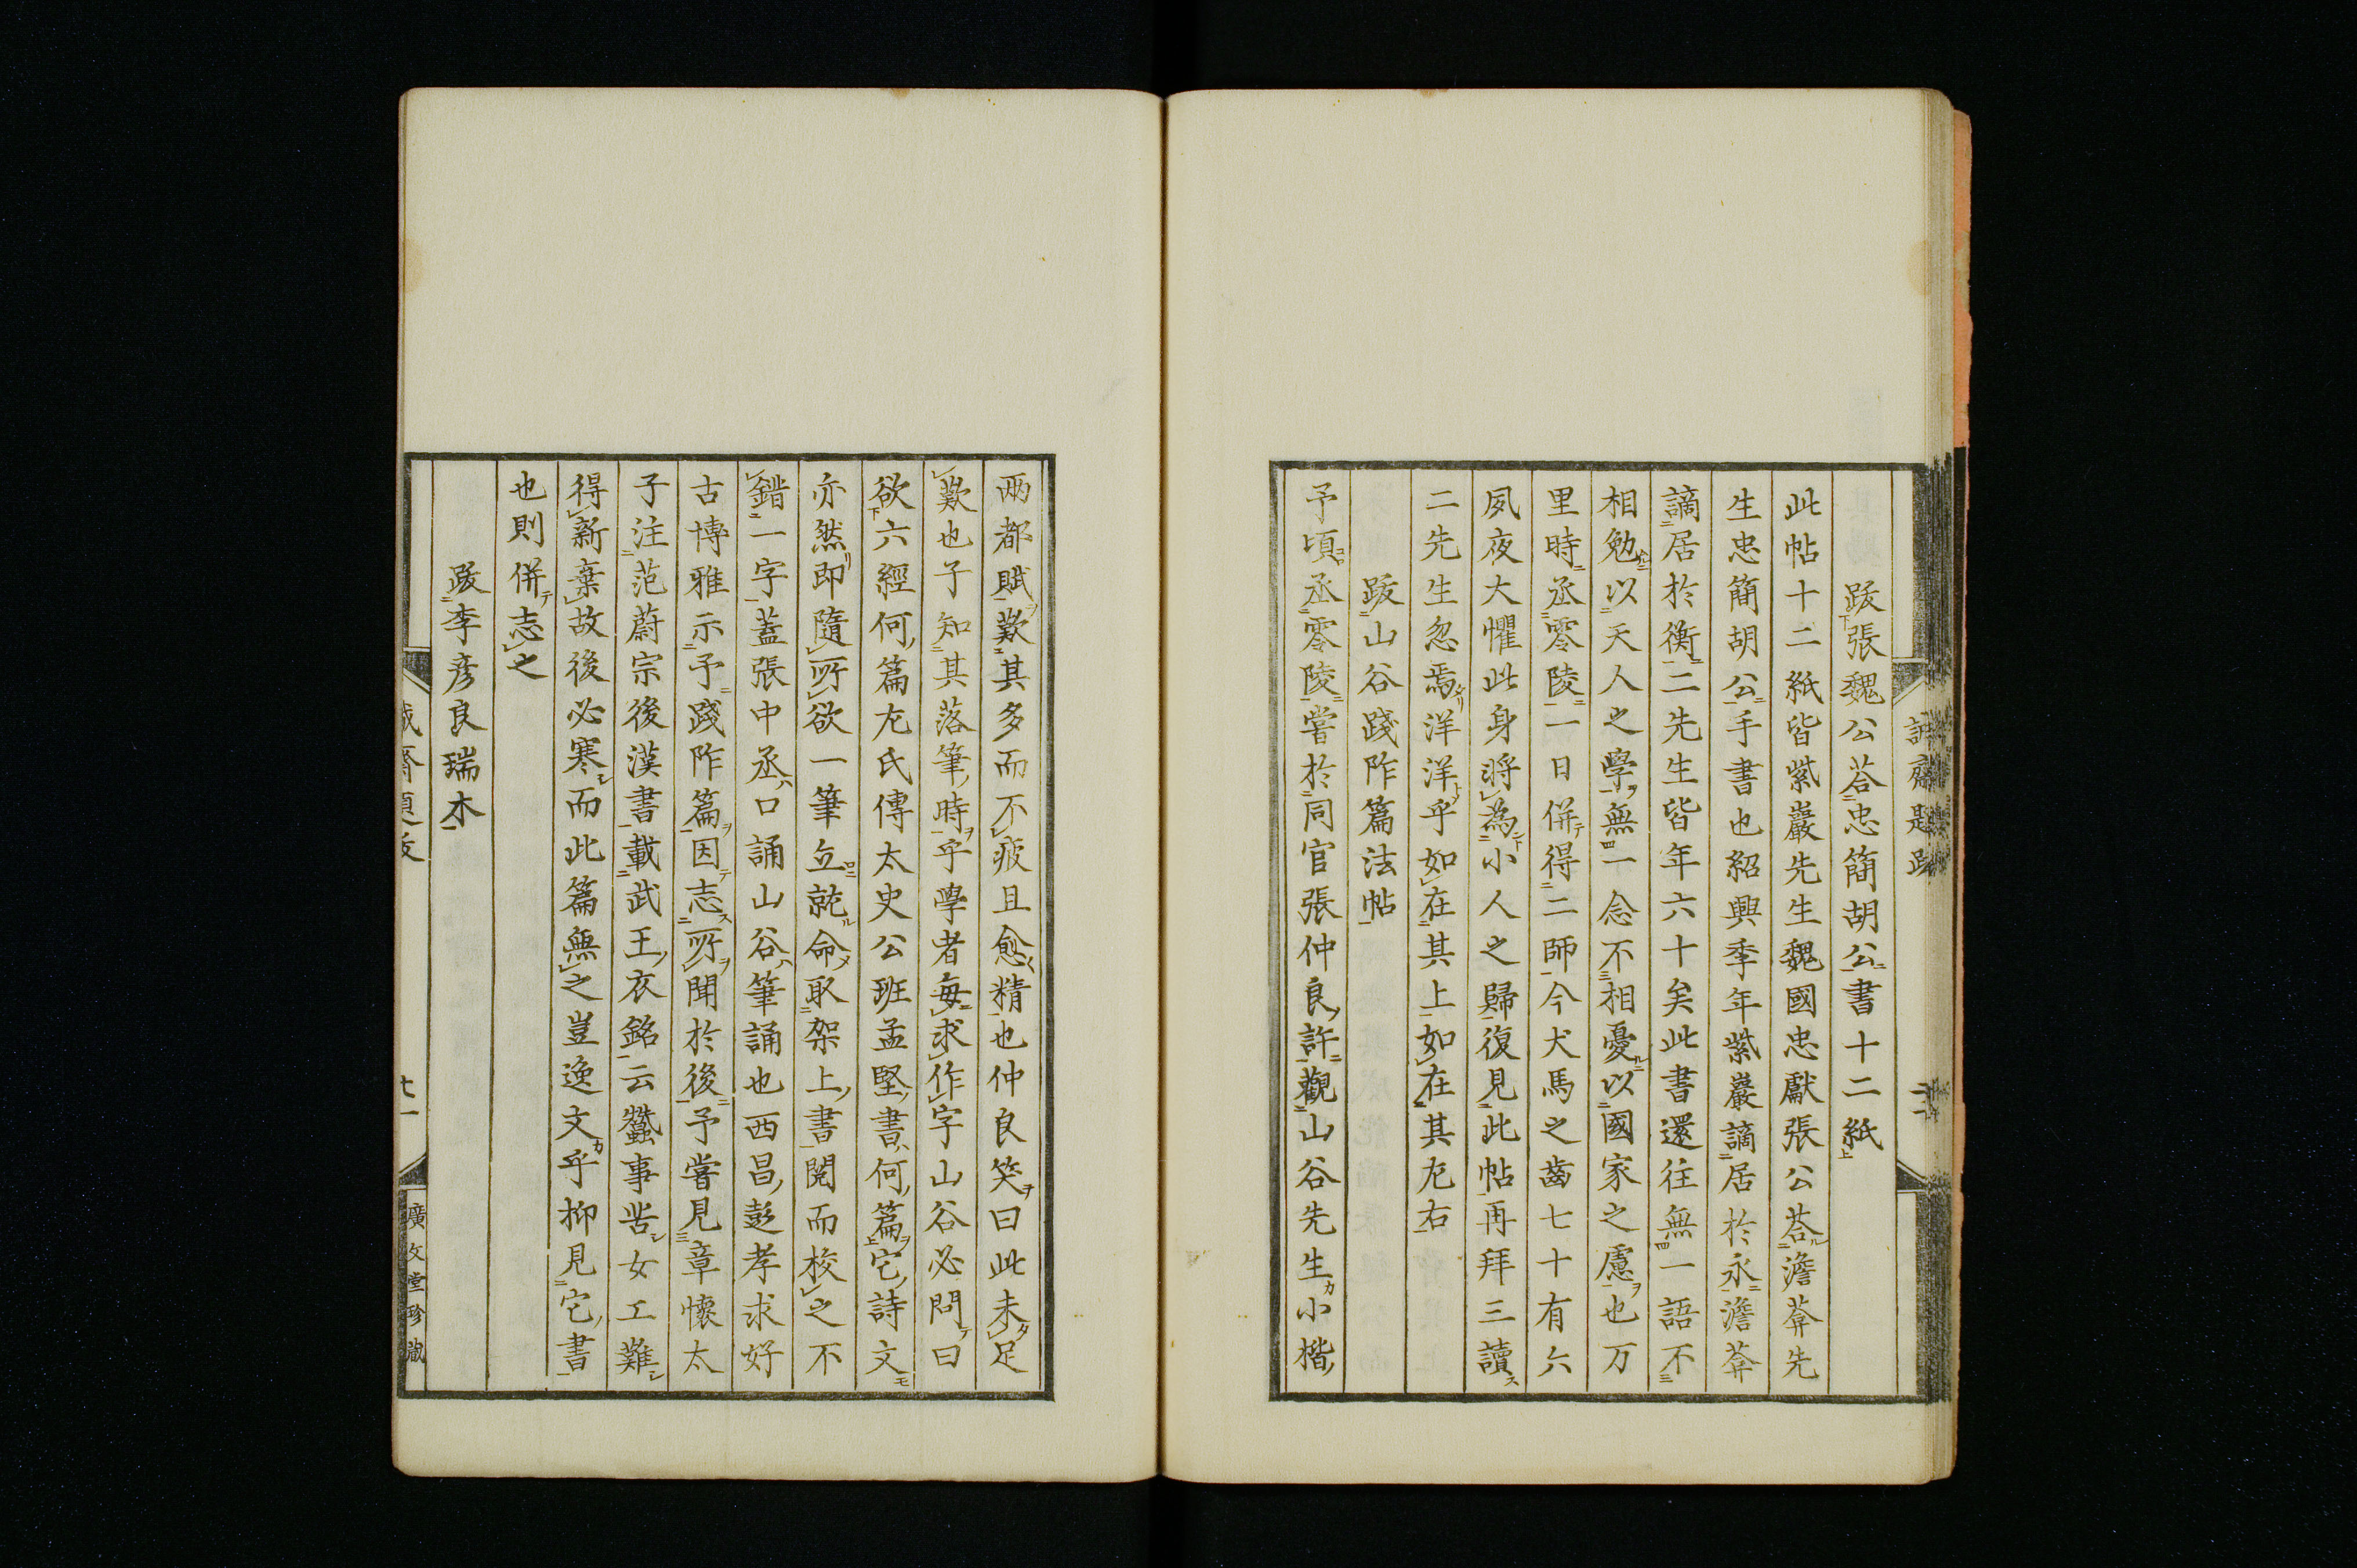 跋張魏公荅忠簡胡公書十二紙
此帖十二紙皆紫巖先生魏國忠獻張公荅澹菴先
生忠簡胡公手書也紹興季年紫巖謫居於永澹菴
謫居於衡二先生皆年六十矣此書還往無一語不
相勉以天人之學無一念不相憂以國家之慮也万
里時丞零陵一日併得二師今犬馬之齒七十有六
夙夜大懼此身將為小人之歸復見此帖再拜三讀
二先生忽焉洋洋乎如在其上如在其左右
跋山谷踐阼篇法帖
予頃丞零陵嘗於同官張仲良許觀山谷先生小楷
兩都賦歎其多而不疲且愈精也仲良笑曰此未足
歎也子知其落筆時乎學者每求作字山谷必問曰
欲六經何篇左氏傳太史公班孟堅書何篇它詩文
亦然即隨所欲一筆立就命取架上書閱而校之不
錯一字蓋張中丞口誦山谷筆誦也西昌彭孝求好
古博雅示予踐阼篇因志所聞於後予嘗見章懷太
子注范蔚宗後漢書載武王衣銘云蠶事苦女工難
得新棄故後必寒而此篇無之豈逸文乎抑見它書
也則併志之
跋李彥良瑞木
誠齋題跋
廣文堂珍藏